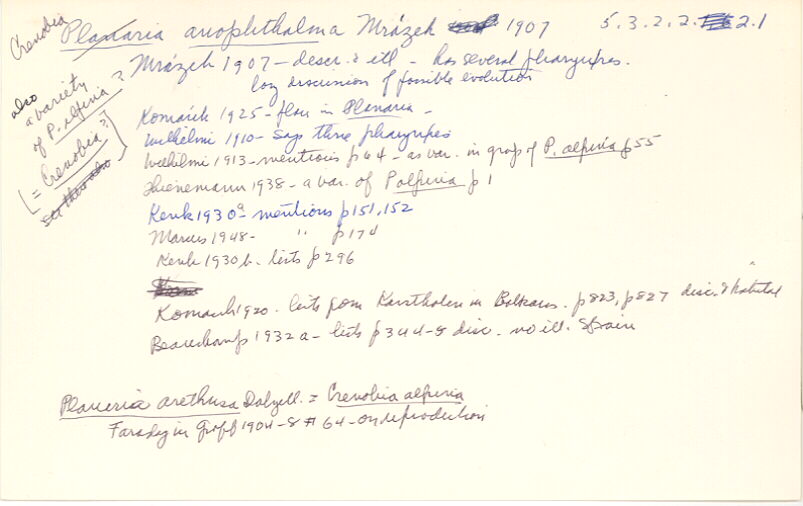 Crenobia
Planaria anophthalma Mrázek 1907 5.3.2.2. 2.1
Mrázek 1907 - descr. & ill - has several pharynges.
long discussion of possible evolution
also
a variety
of P. alpina?
[= Crenobia?]
see then also
Komárek 1925 - flou in Planaria -
Wilhelmi 1910 - says three pharynges
Wilhilmi 1913 - mentions p64 - as var. in group of P. alpina p55
Thienemann 1938 - a var. of P alpina p1
Kenk 1930a - mentions p151, 152
Marcus 1948 - " p174
Kenk 1930b - lists p296
Komárek 1920 - lists from Karsthölen in Balkans. p823, p827 disc. & habitat
Beauchamp 1932a - lists p344-8 disc. no ill. Spain
Planeria arethusa Dalyell. = Crenobia alpina
Faraday in Graff 1904-8 # 64 - on reproduction